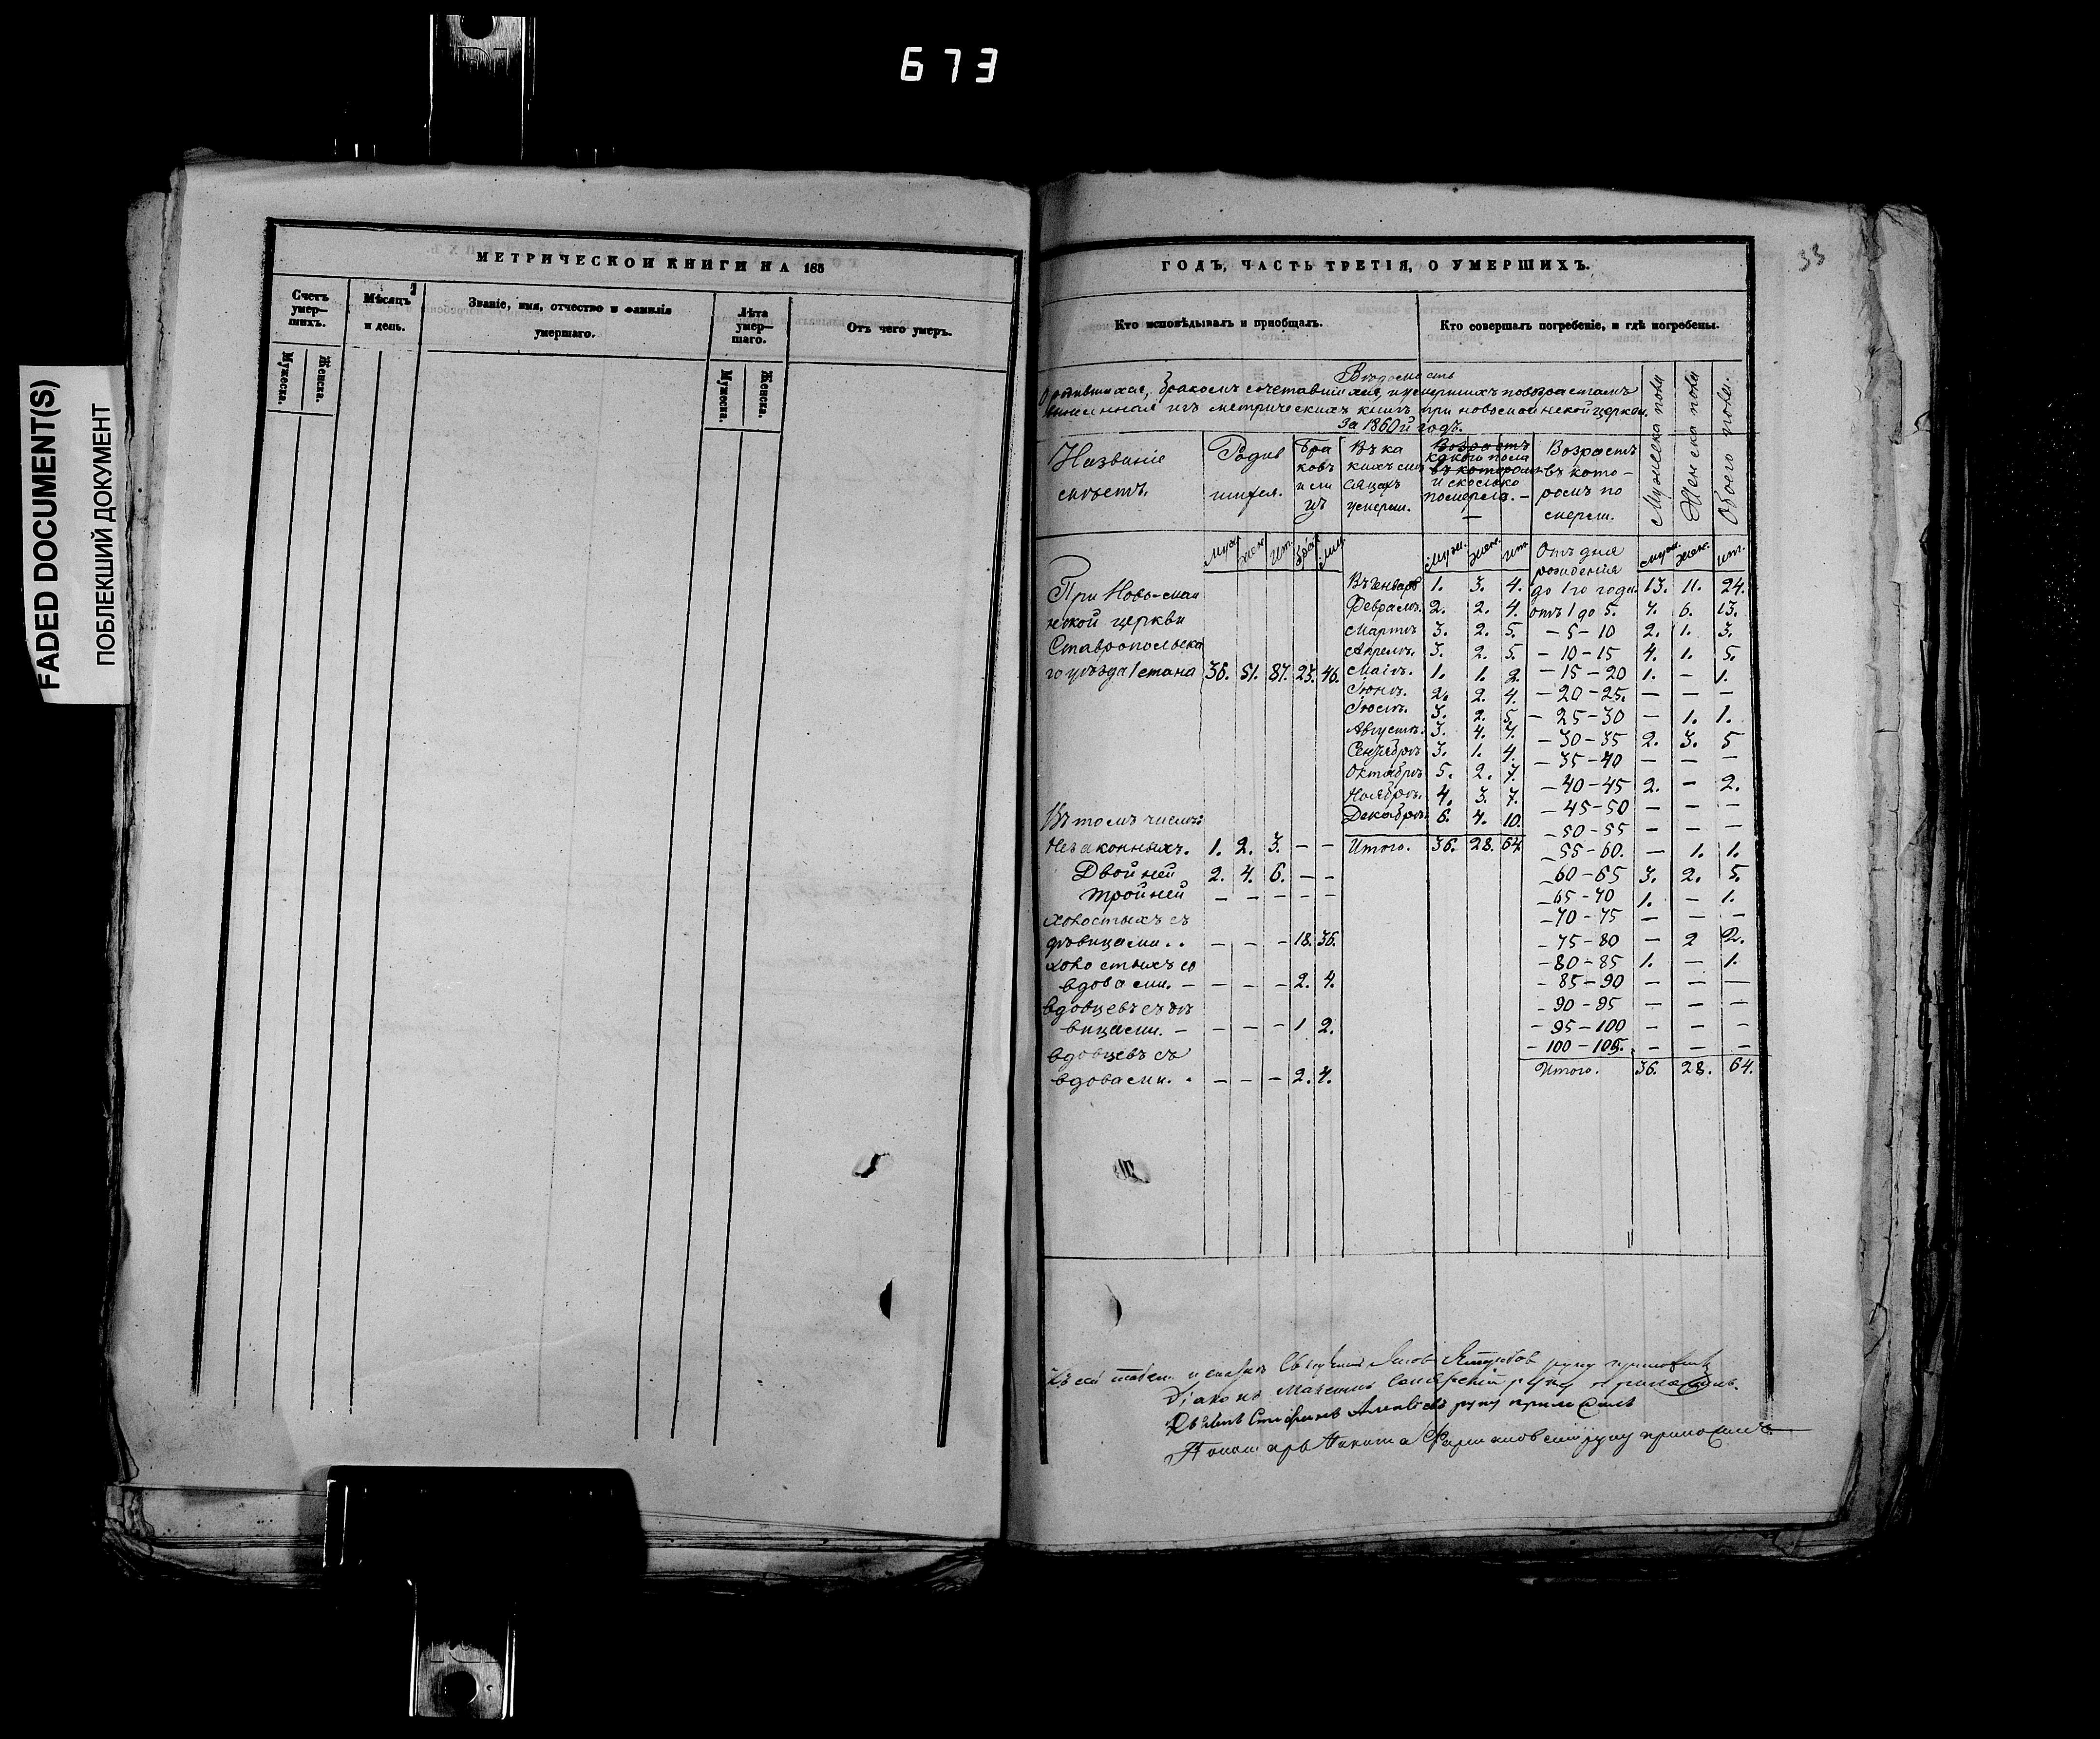 673
FADED DOCUMENT(S)
ПОБЛЕКШИЙ ДОКУМЕНТ
МЕТРИЧЕСКОЙ КНИГИ НА 185
Счетъ умер-шихъ.
Мужеска.
Женска.
Мѣсяцъ и день.
Званіе, имя, отчество и фамилія умершаго.
Лѣта умер-шаго.
Мужеска.
Женска.
Отъ чего умеръ.
33
ГОДЪ, ЧАСТЬ ТРЕТІЯ, О УМЕРШИХЪ.
Кто исповѣдывалъ и пріобщалъ.
Кто совершалъ погребеніе, и гдѣ погребены.
Вѣдомость
О родившихся, бракомъ сочетавшихся, и умершихъ по возрастамъ
изъ метрическихъ книгъ при церкви
за 1860й годъ.
Названіе мѣстъ.
Родившихся.
Браковъ и лицъ
Въ какихъ мѣсяцахъ умерли.
какого пола и сколько померло. –
Возрастъ въ которомъ померли.
Мужеска пола
Женска пола
Обоего пола.
муж. жен. ит. брак. лиц. муж. жен. ит. Отъ дня рожденія муж. жен. ит.
При
Въ Генварѣ 1. 3. 4. до 1го года 13. 11. 24.
ской церкви
Февралѣ. 2. 2. 4. отъ 1 до 5. 7. 6. 13.
Ставропольска
Мартѣ 3. 2. 5. – 5 – 10 2. 1. 3.
Апрелѣ. 3. 2. 5. – 10 – 15 4. 1. 5.
го уѣзда 1 стана 36. 51. 87. 23. 46. Маіѣ. 1. 1. 2. – 15 – 20 1. – 1.
Іюнѣ. 2. 2. 4. – 20 – 25. – – –
Іюлѣ. 3. 2. 5. – 25 – 30 – 1. 1.
Августѣ. 3. 4. 7. – 30 – 35 2. 3. 5
Сентябрѣ 3. 1. 4. – 35 – 40 – – –
Октябрѣ 5. 2. 7. – 40 – 45 2. – 2.
Ноябрѣ. 4. 3. 7. – 45 – 50 – – –
Въ томъ числѣ:
Декабрѣ. 6. 4. 10. – 50 – 55 – – –
Незаконныхъ. 1. 2. 3. – – Итого. 36. 28. 64 – 55 – 60. – 1. 1.
Двойней 2. 4. 6. – – – 60 – 65 3. 2. 5.
тройней – – – – – – 65 – 70 1. – 1.
холостыхъ съ – 70 – 75 – – –
дѣвицами. . – – – 18. 36. – 75 – 80 – 2 2.
холостыхъ со – 80 – 85 1. – 1.
вдовами. – – – – 2. 4. – 85 – 90 – – –
вдовцевъ съ дѣ – 90 – 95 – – –
вицами. – – – – 1 2. – 95 – 100 – – –
вдовцевъ съ – 100 – 105. – – –
вдовами. . – – – 2. 4. Итого. 36. 28. 64.
руку приложилъ
Діаконъ руку приложилъ.
руку приложилъ
Пономарь Никита руку приложилъ.